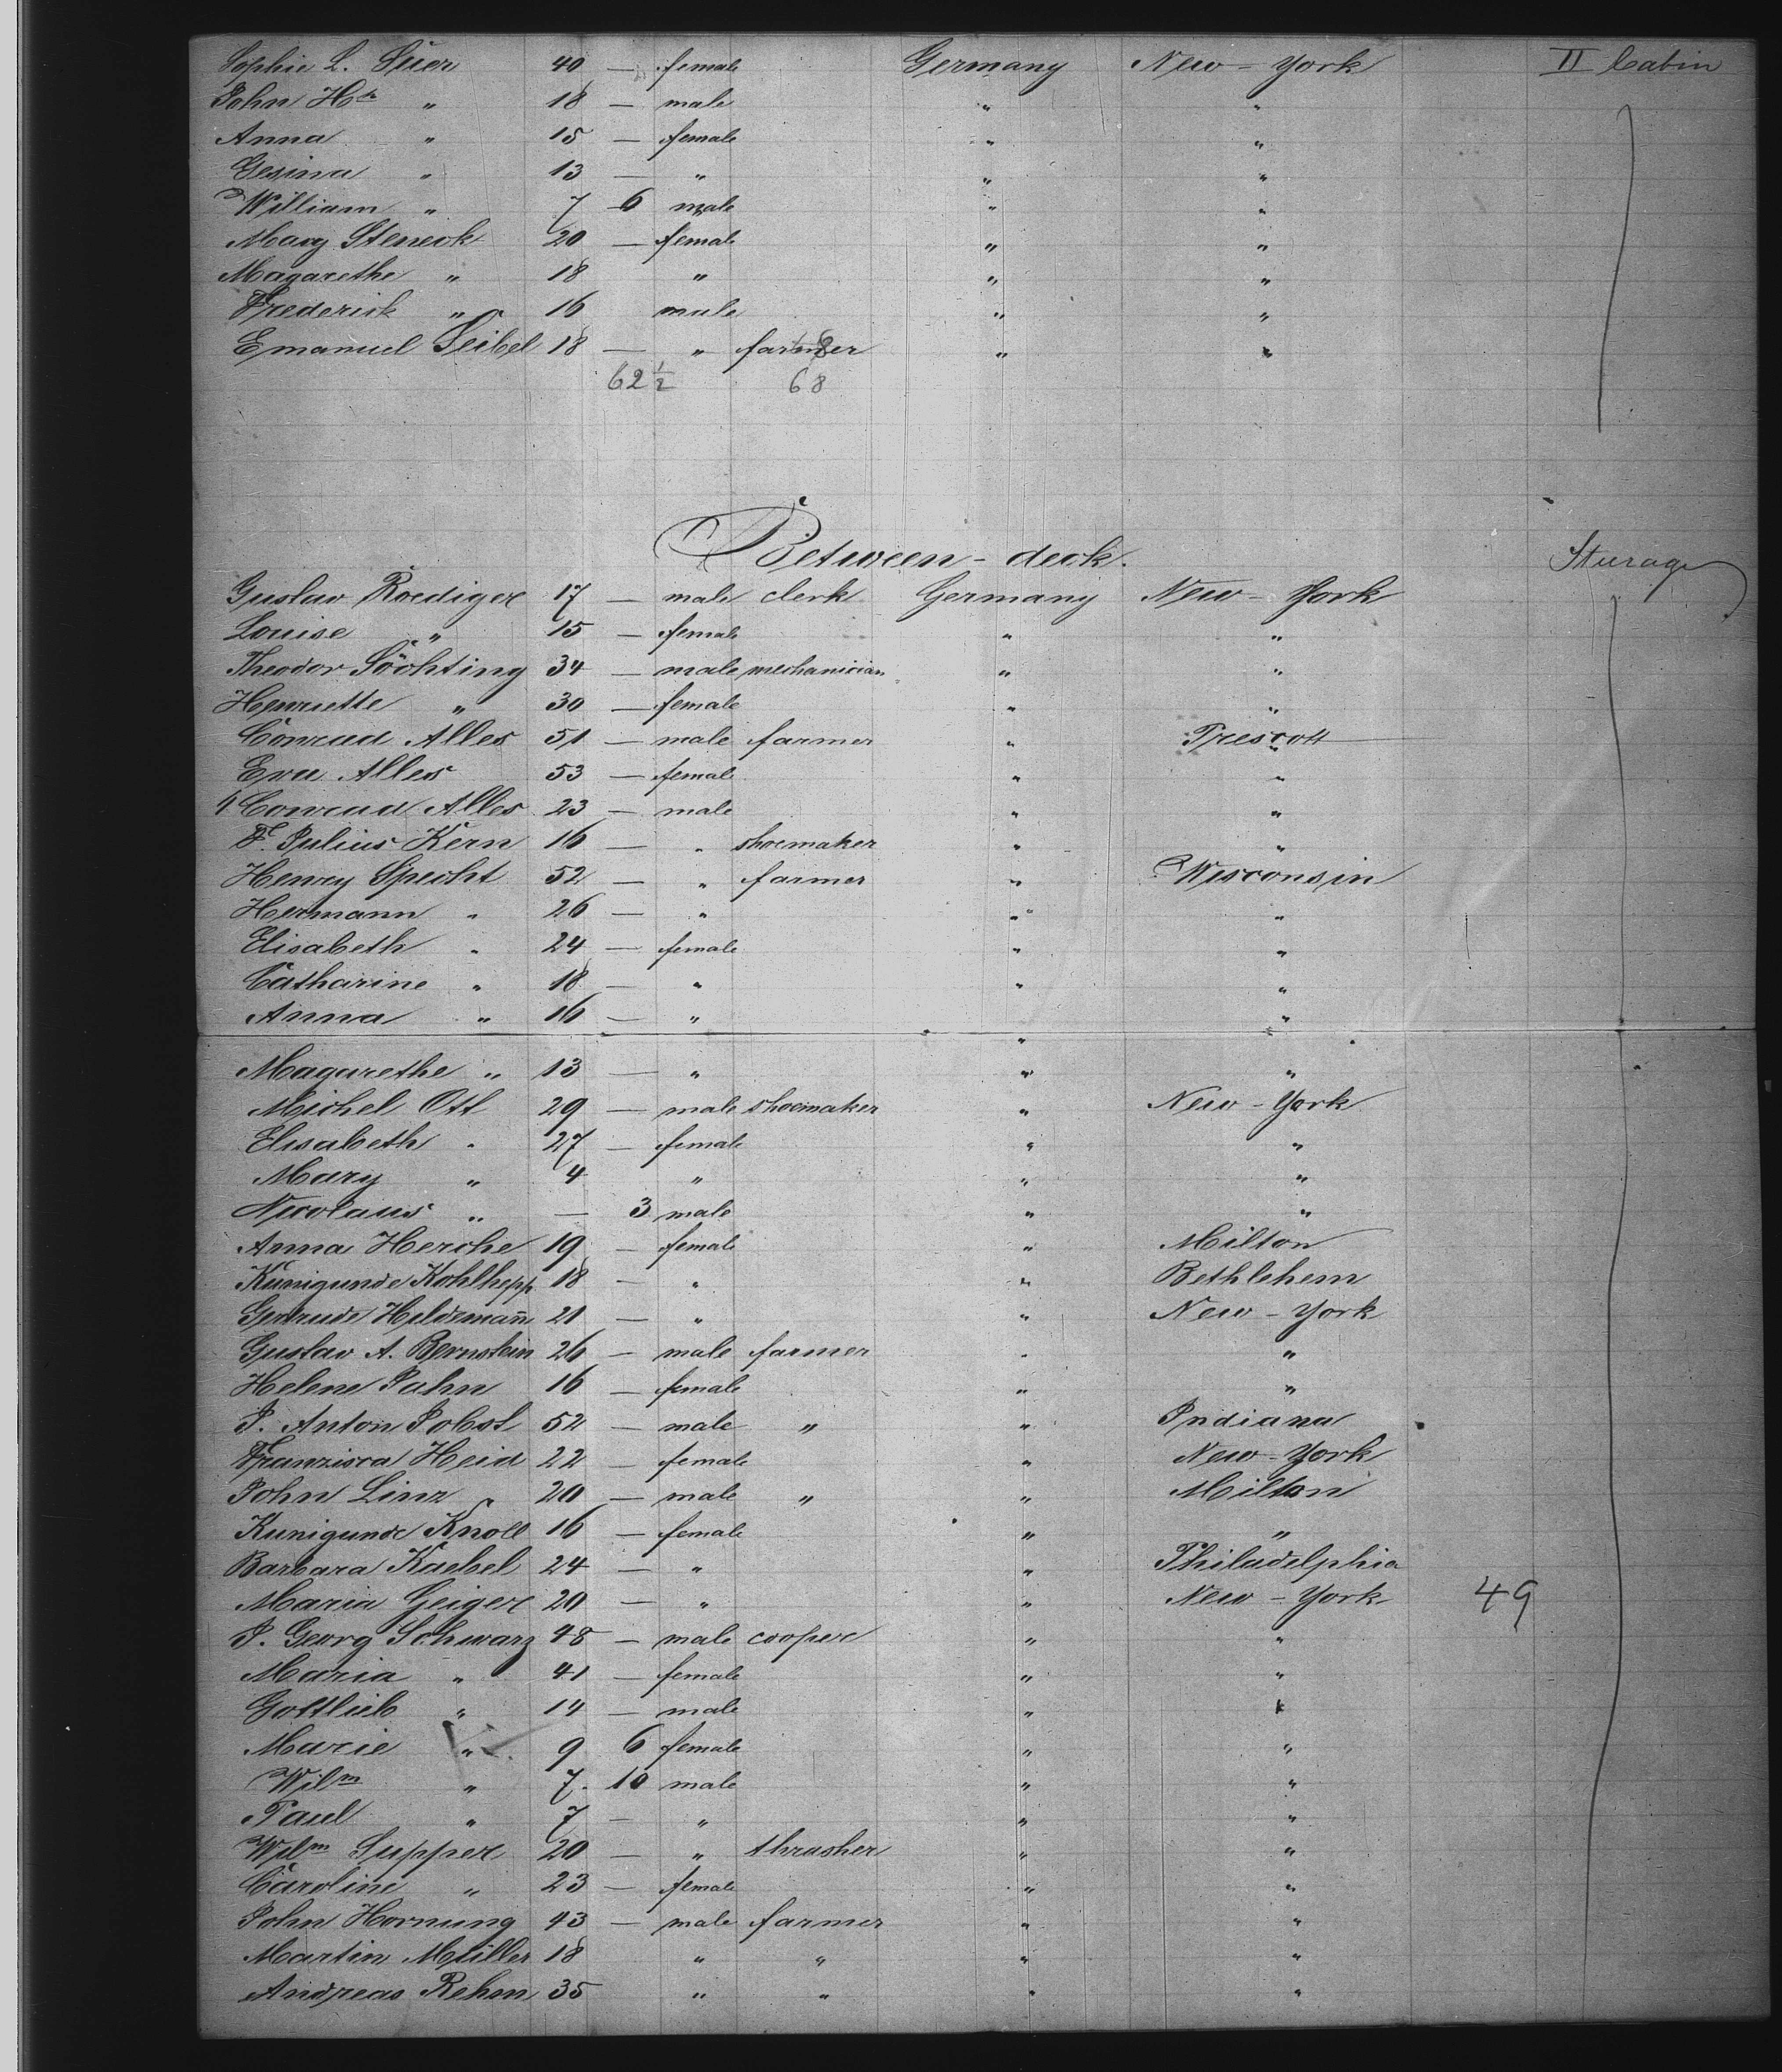 Sophie L. Süer 40 — female Germany New-York II Cabin
John Hch " 18 — male " "
Anna " 15 — female " "
Gesina " 13 — " " "
William " 7 6 male " "
Mary Steneck 20 — female " "
Magarethe " 18 " " "
Frederick " 16 male " "
Emanuel Seibel 18 — " farmer " "
62 1/2 68
Between-deck.
Sturage
Gustav Roediger 17 — male clerk Germany New-York
Louise " 15 — female " "
Theodor Söchting 34 — male mechanician " "
Henriette " 30 — female " "
Conrad Alles 51 — male farmer " Prescott
Eva Alles 53 — female " "
Conrad Alles 23 — male " "
F. Julius Kern 16 — " shoemaker " "
Henry Specht 52 — " farmer " Wisconsin
Hermann " 26 — " " "
Elisabeth " 24 — female " "
Catharine " 18 — " " "
Anna " 16 — " " "
Magarethe " 13 — " " "
Michel Ott 29 — male shoemaker " New-York
Elisabeth " 27 — female " "
Mary " 4 " " "
Nicolaus " — 3 male " "
Anna Herche 19 — female " Milton
Kunigunde Kohlhepp 18 — " " Bethlehem
Gertrude Heldemann 21 — " " New-York
Gustav A. Bernstein 26 — male farmer " "
Helene Jahn 16 — female " "
J. Anton Jobst 52 — male " " Indiana
Franzisca Heid 22 — female " New-York
John Linz 20 — male " " Milton
Kunigunde Knoll 16 — female " "
Barbara Kaebel 24 — " " Philadelphia
Maria Geiger 20 — " " New-York 49
J. Georg Schwarz 48 — male cooper " "
Maria " 41 — female " "
Gottlieb " 14 — male " "
Marie " 9 6 female " "
Wilm " 7 10 male " "
Paul " 7 — " " "
Wilm Supper 20 — " thrasher " "
Caroline " 23 — female " "
John Hornung 43 — male farmer " "
Martin Müller 18 " " " "
Andreas Rehm 35 " " " "